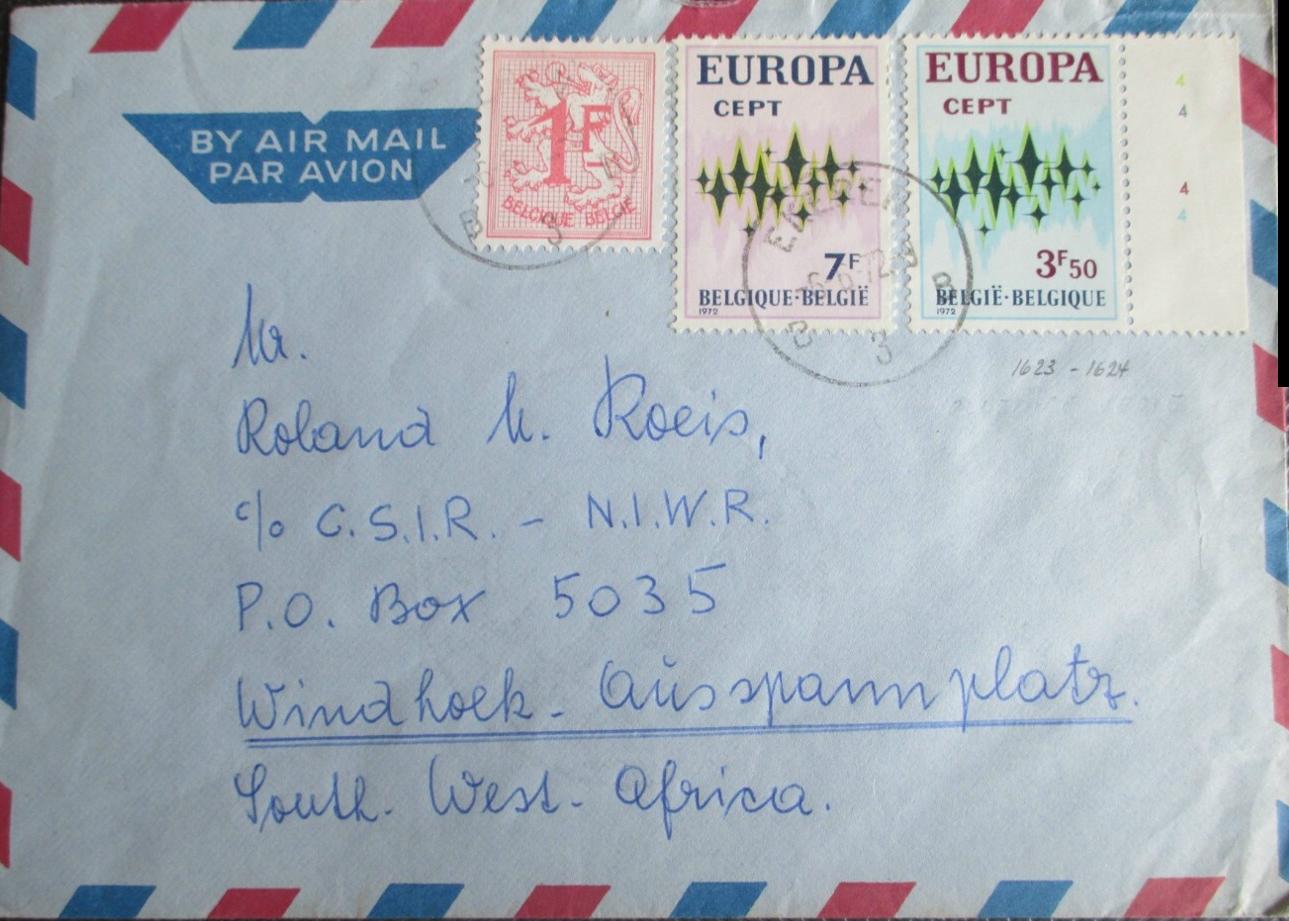 BY AIR MAIL
PAR AVION
1F
BELGIQUE BELGIË
EUROPA
CEPT
7F
BELGIQUE·BELGIË
1972
EUROPA
CEPT
3F50
BELGIË·BELGIQUE
1972
4
4
4
4
EKEREN
-6-6-72
B 3 B
B 3
1623 - 1624
Mr.
Roland M. Roeis,
c/o C.S.I.R. - N.I.W.R.
P.O. Box 5035
Windhoek - Ausspannplatz.
South. West. Africa.